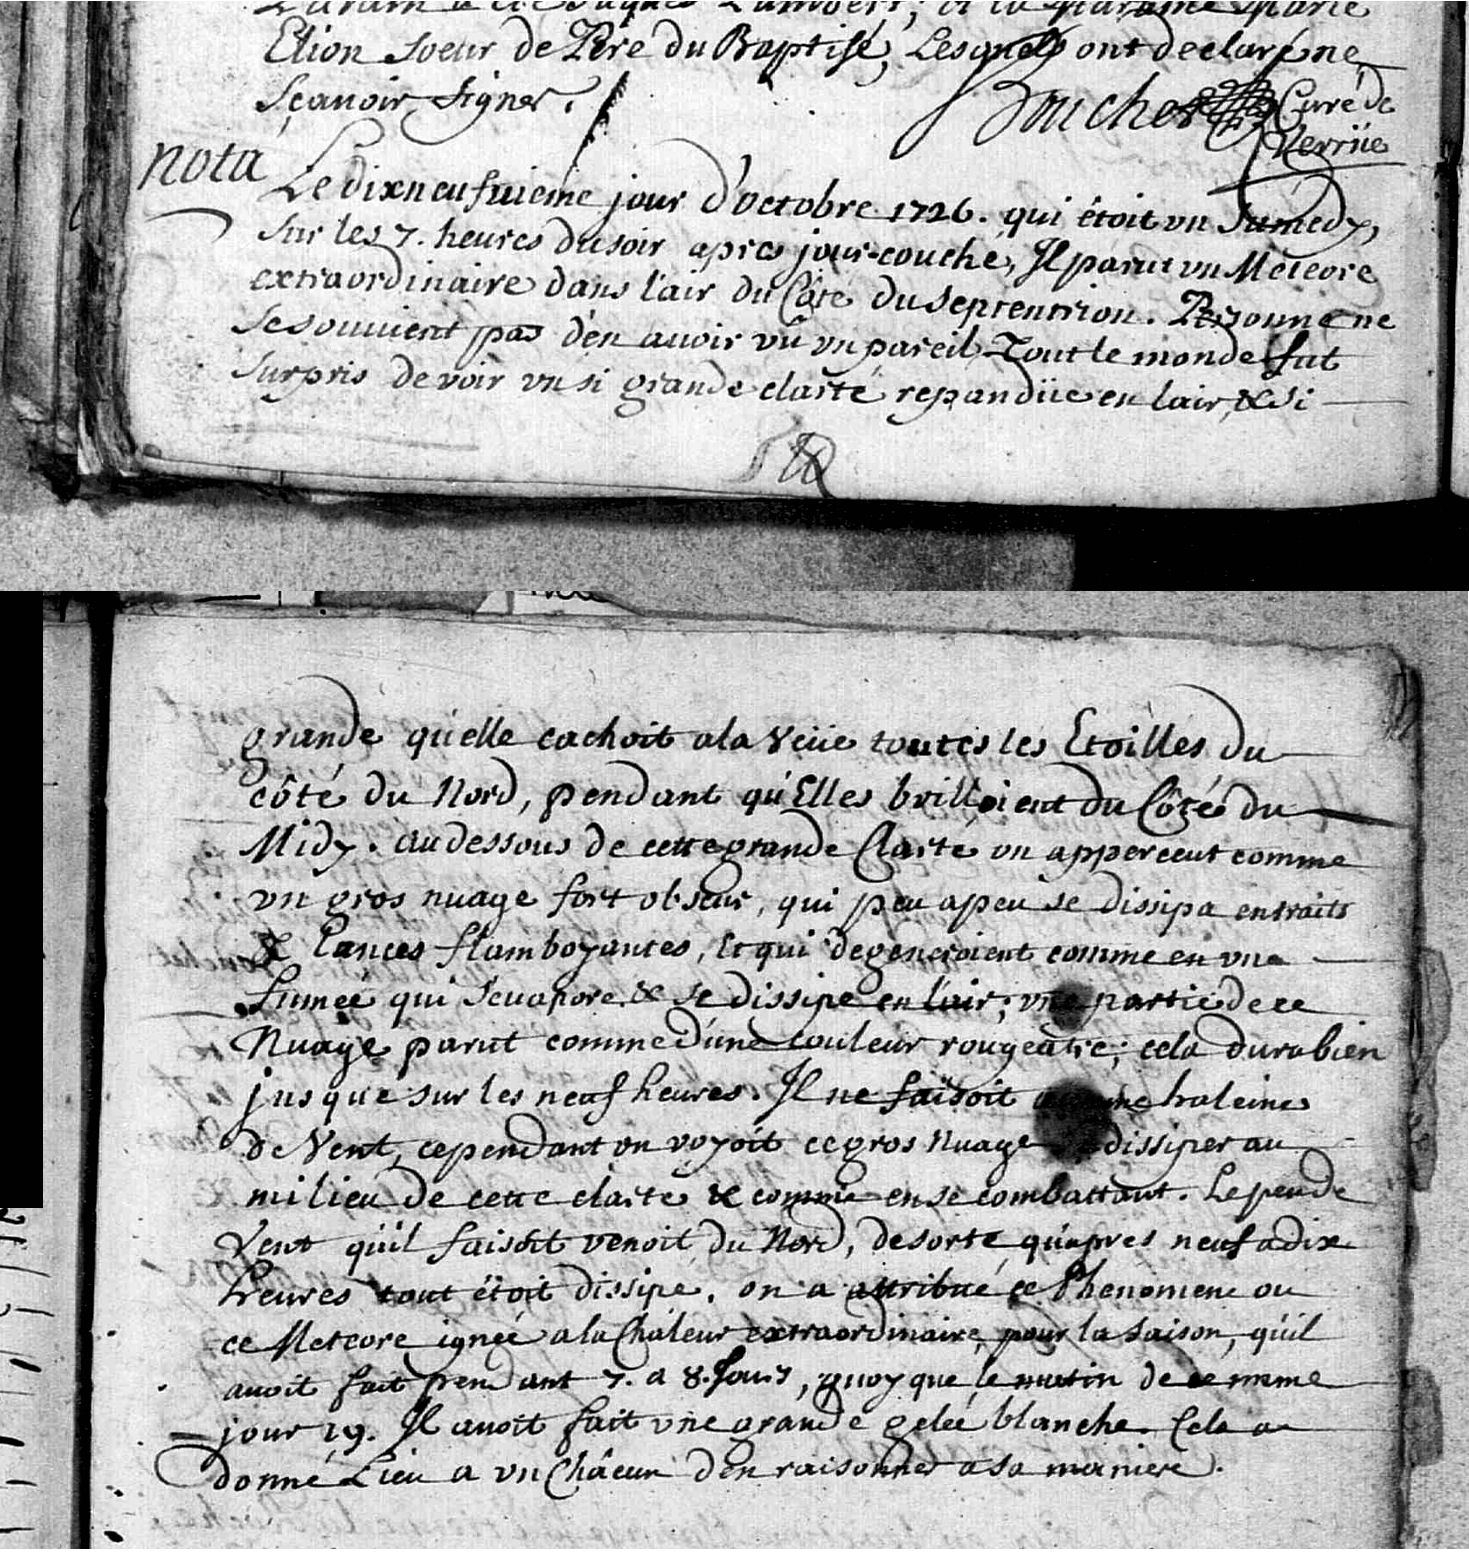 Parain a été Jaques Lambert, et la Maraine Marie
Elion Soeur de Pere du Baptisé, Lesquels ont declaré ne
Sçauoir Signer.
Boucher Curé de
Verriie
nota
Le dixneufuieme jour d'octobre 1726. qui êtoit vn Samedy,
Sur les 7. heures du soir apres jour-couché, Il parut vn Meteore
extraordinaire dans l'air du Côté du Septentrion. Personne ne
Se souuient pas d'en auoir vû vn pareil. Tout le monde fut
Surpris de voir vn si grande clarté repandüe en lair, & Si
grande qu'elle cachoit a la Veüe toutes les Etoilles du
côté du Nord, pendant qu'Elles brilloient du Côté du
Midy. au dessous de cette grande Clarté on apperceut comme
vn gros nuage fort obscur, qui peu a peu se dissipa en traits
& Lances flamboyantes, Et qui degeneroient comme en vne
fumeé qui s'euapore & se dissipe en l'air; vne partie de ce
Nuage parut comme d'une couleur rougeatre; cela dura bien
jusque sur les neuf heures. Il ne faisoit haleine
de Vent, cependant on voyoit ce gros Nuage dissiper au
milieu de cette clarté & comme en se combattant. Le peu de
Vent qu'il faisoit venoit du Nord, de sorte qu'apres neuf a dix
heures tout êtoit dissipé. on a attribué ce Phenomene ou
ce Meteore igneé a la Chaleur extraordinaire, pour la Saison, qu'il
auoit fait pendant 7. a 8. Jours, quoy que le matin de ce mme
jour 19. Il auoit fait vne grande geleé blanche. Cela a
donné Lieu a vn Châcun d'en raisonner a sa maniere.